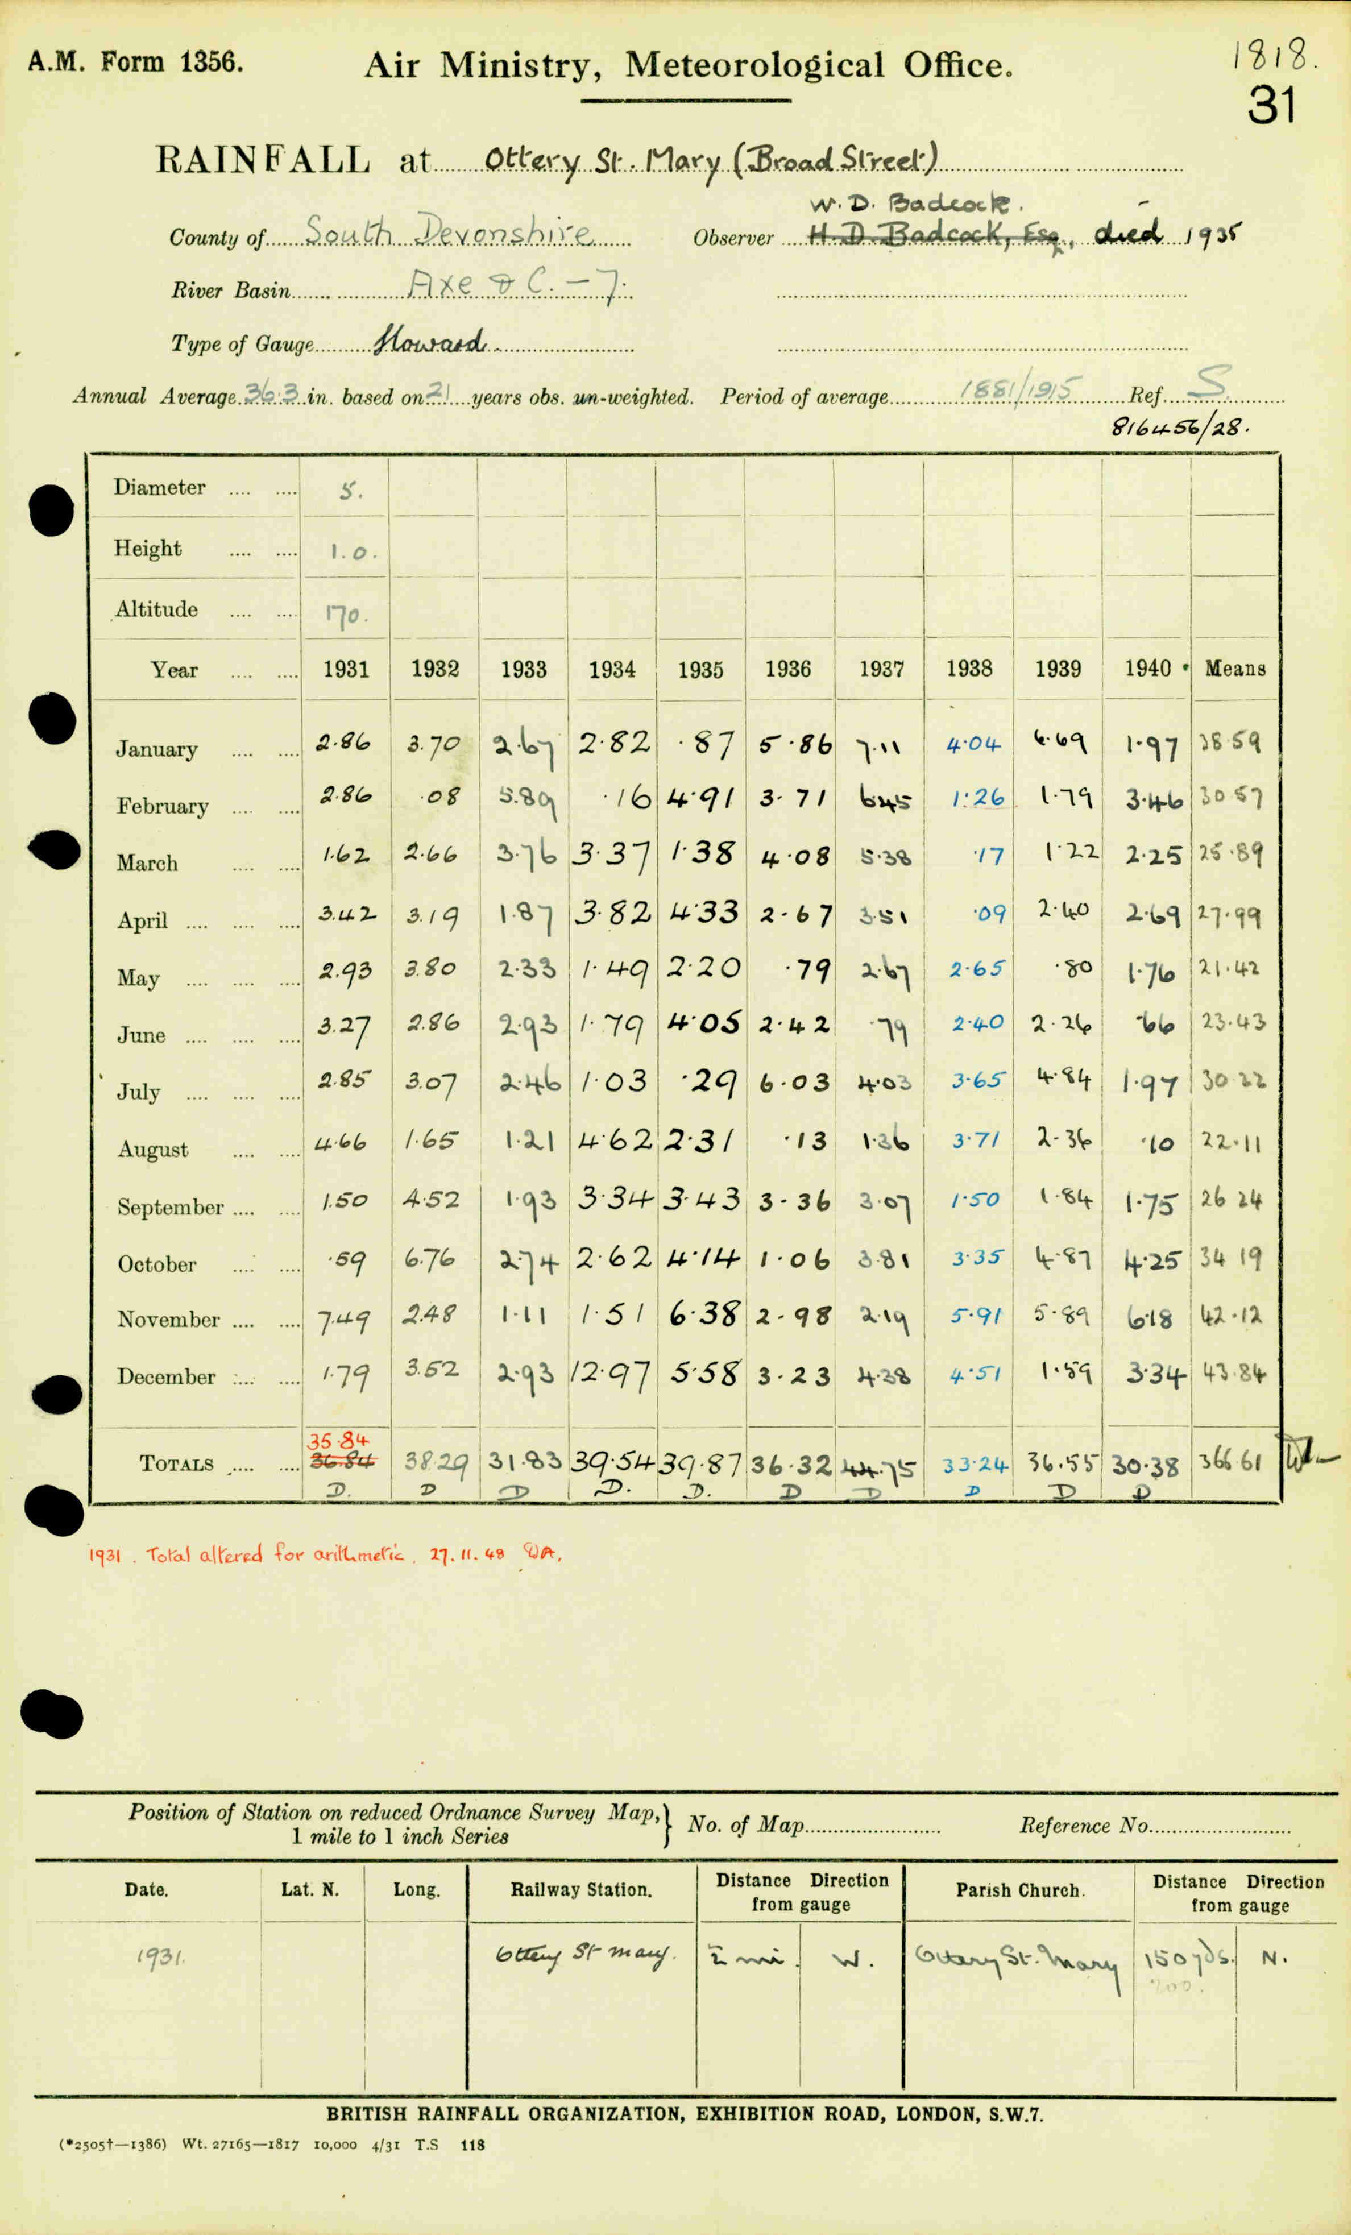 A.M. Form 1356. Air Ministry, Meteorological Office. 1818.
31
RAINFALL at Ottery St. Mary (Broad Street)
W. D. Badcock.
County of South Devonshire Observer H. D. Badcock, Esq, died 1935
River Basin Axe & C. – 7.
Type of Gauge Howard.
Annual Average 36.3 in. based on 21 years obs. un-weighted. Period of average 1881/1915 Ref. S.
816456/28.
Diameter 5.
Height 1.0.
Altitude 170.
Year 1931 1932 1933 1934 1935 1936 1937 1938 1939 1940 Means
January 2.86 3.70 2.67 2.82 .87 5.86 7.11 4.04 6.69 1.97 38.59
February 2.86 .08 5.89 .16 4.91 3.71 6.45 1.26 1.79 3.46 30.57
March 1.62 2.66 3.76 3.37 1.38 4.08 5.38 .17 1.22 2.25 25.89
April 3.42 3.19 1.87 3.82 4.33 2.67 3.51 .09 2.40 2.69 27.99
May 2.93 3.80 2.33 1.49 2.20 .79 2.67 2.65 .80 1.76 21.42
June 3.27 2.86 2.93 1.79 4.05 2.42 .79 2.40 2.26 .66 23.43
July 2.85 3.07 2.46 1.03 .29 6.03 4.03 3.65 4.84 1.97 30.22
August 4.66 1.65 1.21 4.62 2.31 .13 1.36 3.71 2.36 .10 22.11
September 1.50 4.52 1.93 3.34 3.43 3.36 3.07 1.50 1.84 1.75 26 24
October .59 6.76 2.74 2.62 4.14 1.06 3.81 3.35 4.87 4.25 34 19
November 7.49 2.48 1.11 1.51 6.38 2.98 2.19 5.91 5.89 6.18 42.12
December 1.79 3.52 2.93 12.97 5.58 3.23 4.38 4.51 1.59 3.34 43.84
35.84
TOTALS 36.84 38.29 31.83 39.54 39.87 36.32 44.75 33.24 36.55 30.38 366 61
D. D D D. D. D D D D D
1931. Total altered for arithmetic. 27.11.48 DA.
Position of Station on reduced Ordnance Survey Map, } No. of Map Reference No.
1 mile to 1 inch Series
Date. Lat. N. Long. Railway Station. Distance Direction Parish Church. Distance Direction
from gauge from gauge
1931. Ottery St Mary. ½ mi. W. Ottery St. Mary 150 yds. N.
200.
BRITISH RAINFALL ORGANIZATION, EXHIBITION ROAD, LONDON, S.W.7.
(*2505†—1386) Wt. 27165—1817 10,000 4/31 T.S 118